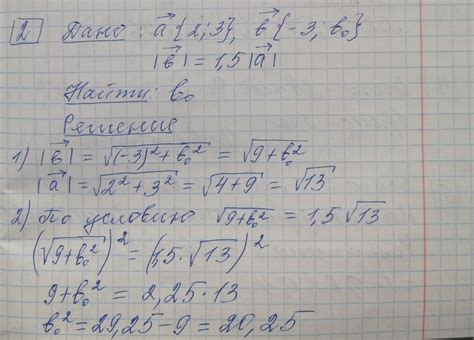 2 Дано: a⃗{2; 3}, b⃗{-3; b₀}
|b⃗| = 1,5|a⃗|
Найти: b₀
Решение
1) |b⃗| = √((-3)² + b₀²) = √(9+b₀²)
|a⃗| = √(2² + 3²) = √(4+9) = √13
2) По условию √(9+b₀²) = 1,5√13
(√(9+b₀²))² = (1,5·√13)²
9+b₀² = 2,25·13
b₀² = 29,25-9 = 20,25